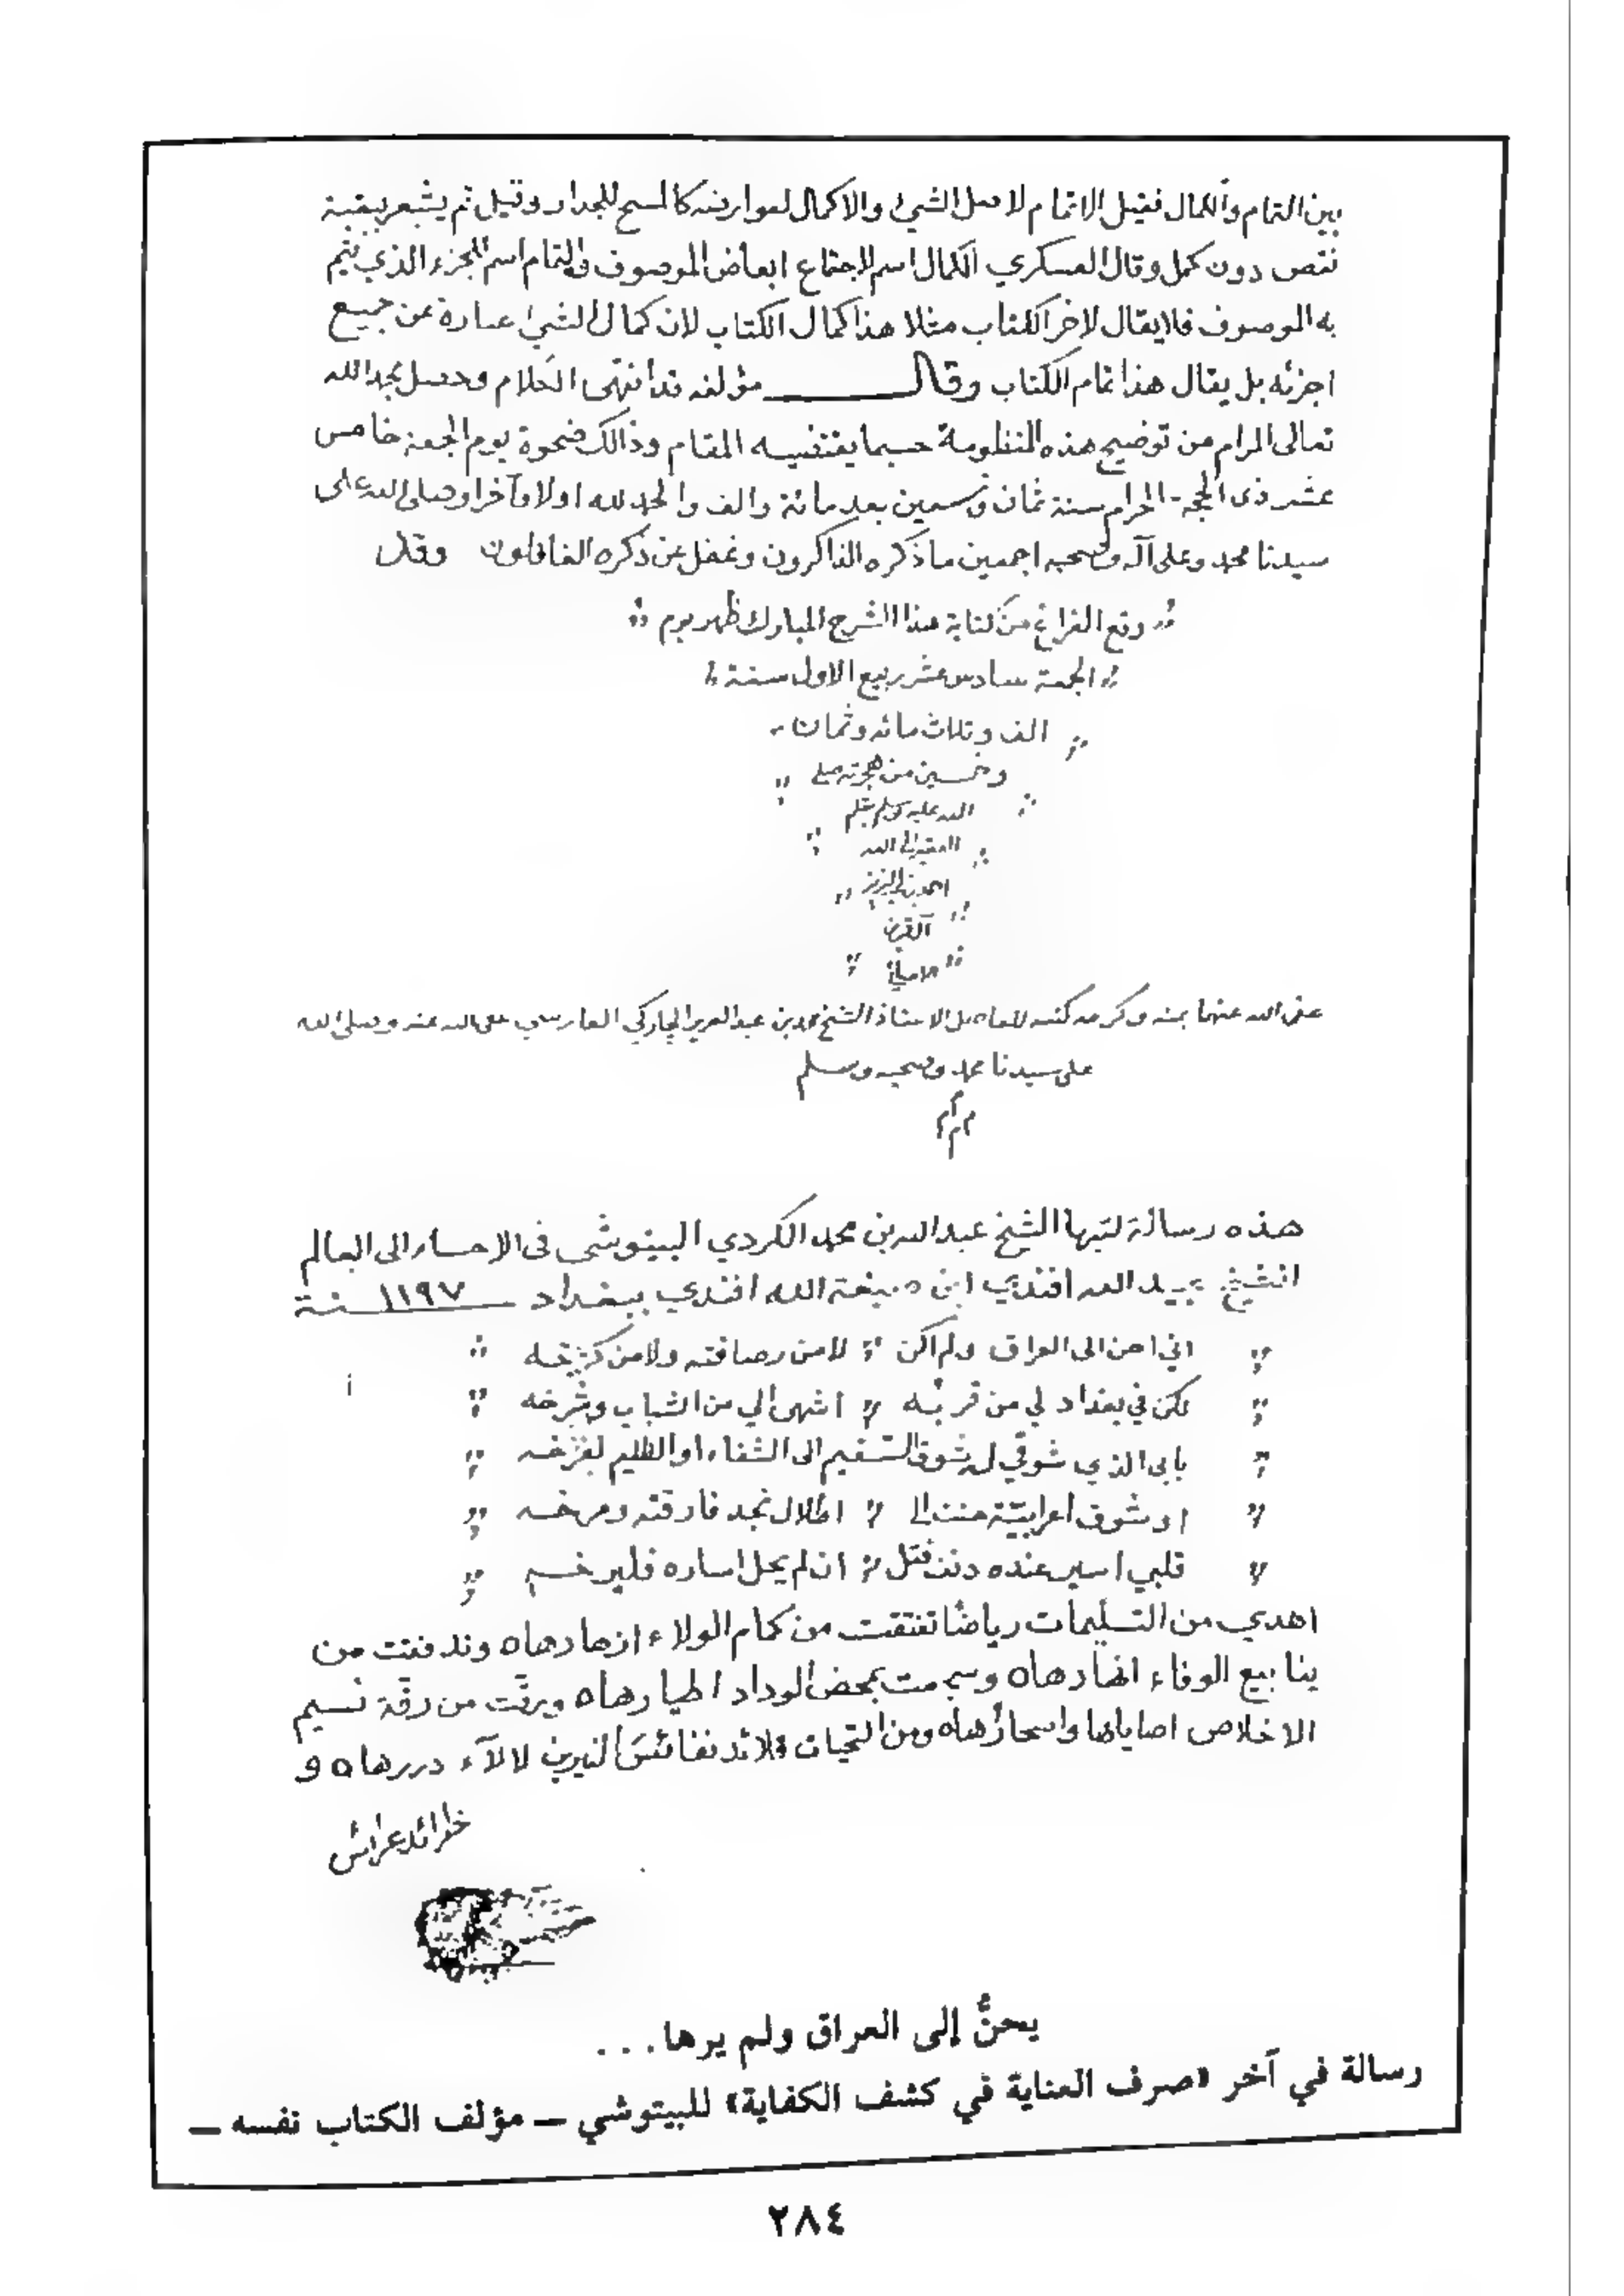 بين التمام والكمال فقيل الاتمام لاصل الشيء والاكمال لعوارضه كالمسح للجدار وقيل تم يشعر بقية
نقص دون كمل وقال العسكري الكمال اسم لاجتماع ابعاض الموصوف والتمام اسم للجزء الذي يتم
به الموصوف فلا يقال لاخر الكتاب مثلا هذا كمال الكتاب لان كمال الشيء عبارة عن جميع
اجزئه بل يقال هذا تمام الكتاب وقال مؤلفه قد انتهى الكلام وحصل بحمد الله
تعالى المرام من توضيح هذه المنظومة حسبما يقتضيه المقام وذالك ضحوة يوم الجمعة خامس
عشر ذى الحجة الحرام سنة ثمان وتسعين بعد مائة والف والحمد لله اولا وآخرا وصلى الله على
سيدنا محمد وعلى آله وصحبه اجمعين ما ذكره الذاكرون وغفل عن ذكره الغافلون وقد
وقع الفراغ من كتابة هذا الشرح المبارك ظهر يوم
الجمعة سادس عشر ربيع الاول سنة
الف وثلاث مائه وثمان
وخمسين من هجرته صلى
الله عليه وسلم بقلم
الفقير الى الله
آل
عفى الله عنهما بمنه وكرمه كتبه الاستاذ الشيخ محمد بن عبد العزيز الفارسي عفى الله عنه وصلى الله
على سيدنا محمد وصحبه وسلم
م م م
هذه رسالة كتبها الشيخ عبد الله بن محمد الكردي البيتوشى فى الاحساء الى العالم
الشيخ عبيد الله افندي ابن صبغة الله افندي ببغداد سنة ١١٩٧
اني احن الى العراق ولم اكن لا من رصافته ولا من كرخه
لكن في بغداد لي من قربه اشهى الي من الشباب وشرخه
بابى الذي شوقي له شوق السقيم الى الشفاء او الظليم لفرخه
او شوق اعرابيّة حنت الى اطلال نجد فارقته ومرخه
قلبي اسير عنده دنف فقل ان لم يحل اساره فليرخه
اهدي من التسليمات رياضًا تفتقت من كمام الولاء ازهارها ٥ وتدفقت من
ينابيع الوفاء انهارها ٥ وسجعت بمحض الوداد اطيارها ٥ ورقّت من رقّة نسيم
الاخلاص اصايلها واسحارها ٥ ومن التحيات قلائد نفائس لالآء دررها ٥ و
خرائد عرائس
يحنُّ إلى العراق ولم يرها...
رسالة في آخر «صرف العناية في كشف الكفاية» للبيتوشي – مؤلف الكتاب نفسه –
٢٨٤